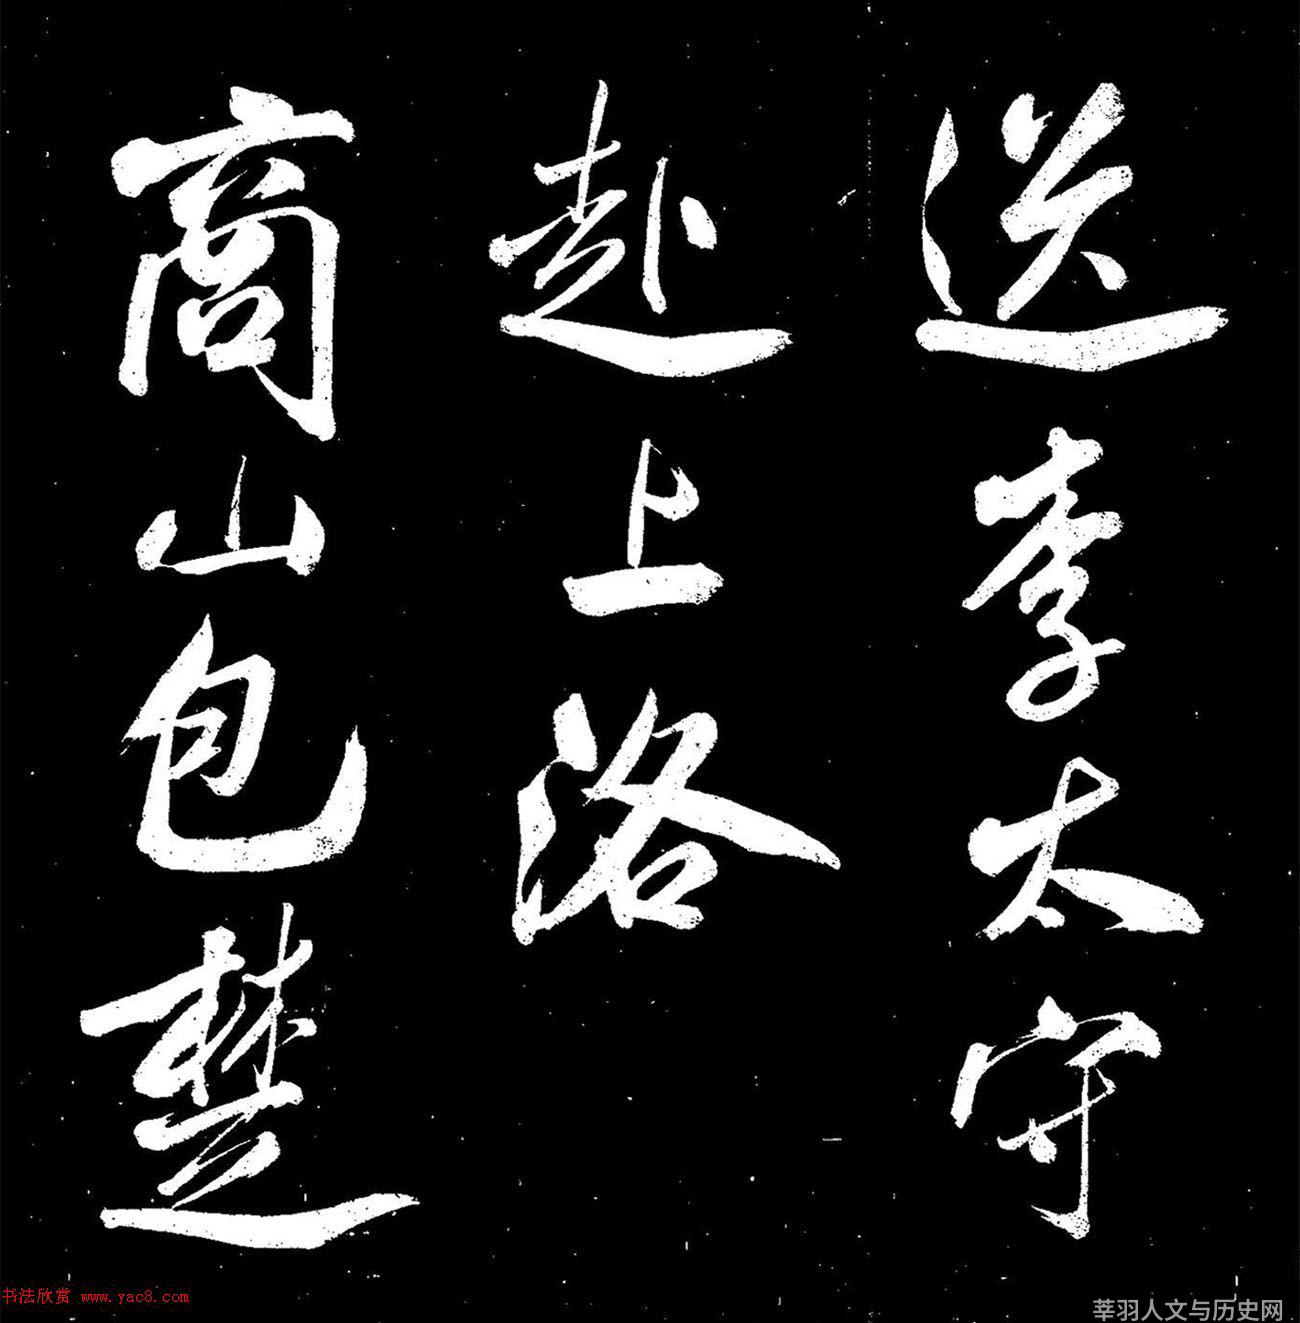 送李太守
赴上洛
商山包楚
书法欣赏 www.yac8.com
莘羽人文与历史网